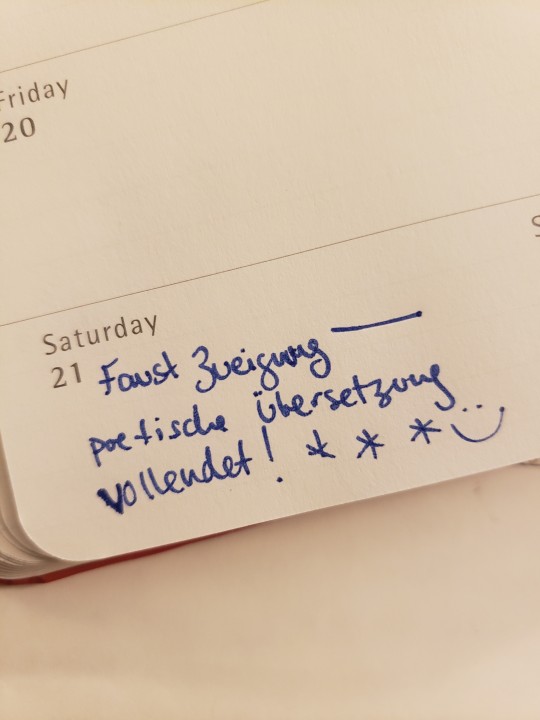 Friday
20
S
Saturday
21 Faust Zueigung —
poetische Übersetzung
vollendet! * * * :)